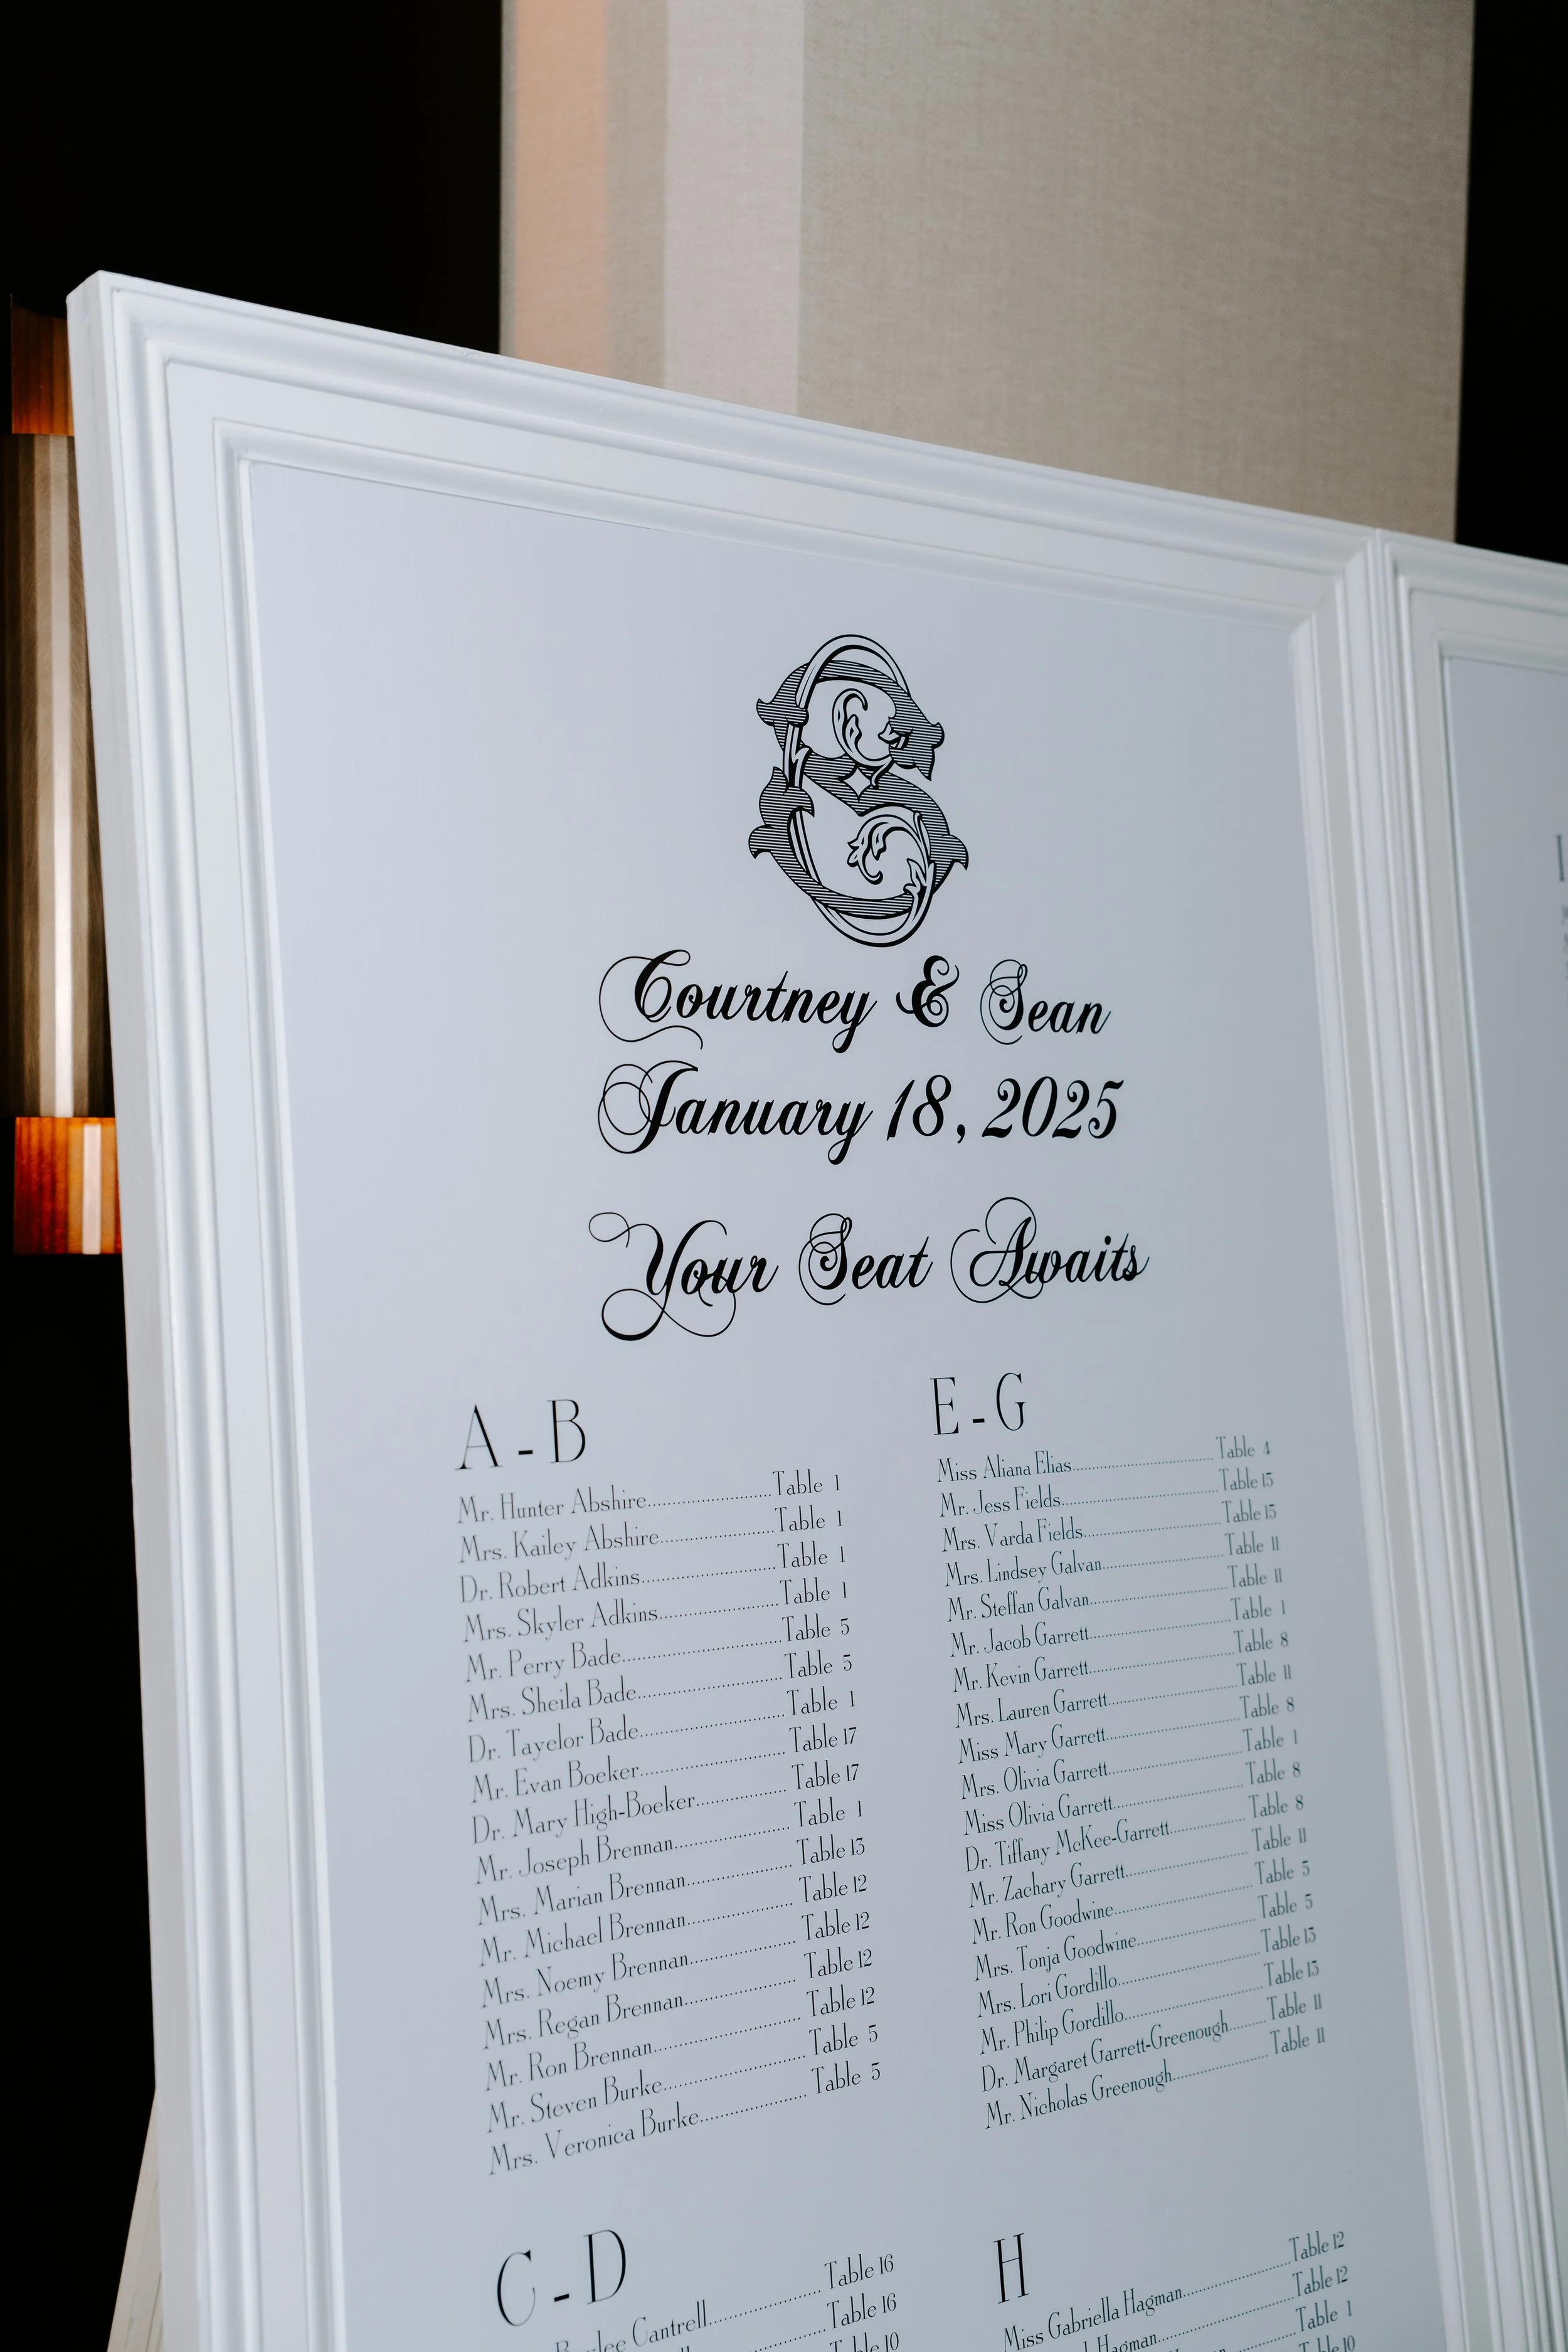 Courtney & Sean
January 18, 2025
Your Seat Awaits
A - B
Mr. Hunter Abshire........................Table 1
Mrs. Kailey Abshire......................Table 1
Dr. Robert Adkins..........................Table 1
Mrs. Skyler Adkins.......................Table 1
Mr. Perry Bade..............................Table 5
Mrs. Sheila Bade............................Table 5
Dr. Tayelor Bade...........................Table 1
Mr. Evan Boeker...........................Table 17
Dr. Mary High-Boeker.................Table 17
Mr. Joseph Brennan......................Table 1
Mrs. Marian Brennan....................Table 13
Mr. Michael Brennan....................Table 12
Mrs. Noemy Brennan....................Table 12
Mrs. Regan Brennan.....................Table 12
Mr. Ron Brennan...........................Table 12
Mr. Steven Burke...........................Table 5
Mrs. Veronica Burke.....................Table 5
C - D
Cantrell.....................Table 16
Table 16
Table 10
E - G
Miss Aliana Elias............................Table 4
Mr. Jess Fields...............................Table 15
Mrs. Varda Fields..........................Table 15
Mrs. Lindsey Galvan.....................Table 11
Mr. Steffan Galvan........................Table 11
Mr. Jacob Garrett..........................Table 1
Mr. Kevin Garrett..........................Table 8
Mrs. Lauren Garrett......................Table 11
Miss Mary Garrett.........................Table 8
Mrs. Olivia Garrett........................Table 1
Miss Olivia Garrett........................Table 8
Dr. Tiffany McKee-Garrett..............Table 8
Mr. Zachary Garrett......................Table 11
Mr. Ron Goodwine........................Table 5
Mrs. Tonja Goodwine....................Table 5
Mrs. Lori Gordillo..........................Table 13
Mr. Philip Gordillo.........................Table 13
Dr. Margaret Garrett-Greenough.......Table 11
Mr. Nicholas Greenough.................Table 11
H
Miss Gabriella Hagman...................Table 12
Hagman.......................Table 12
Table 1
Table 10